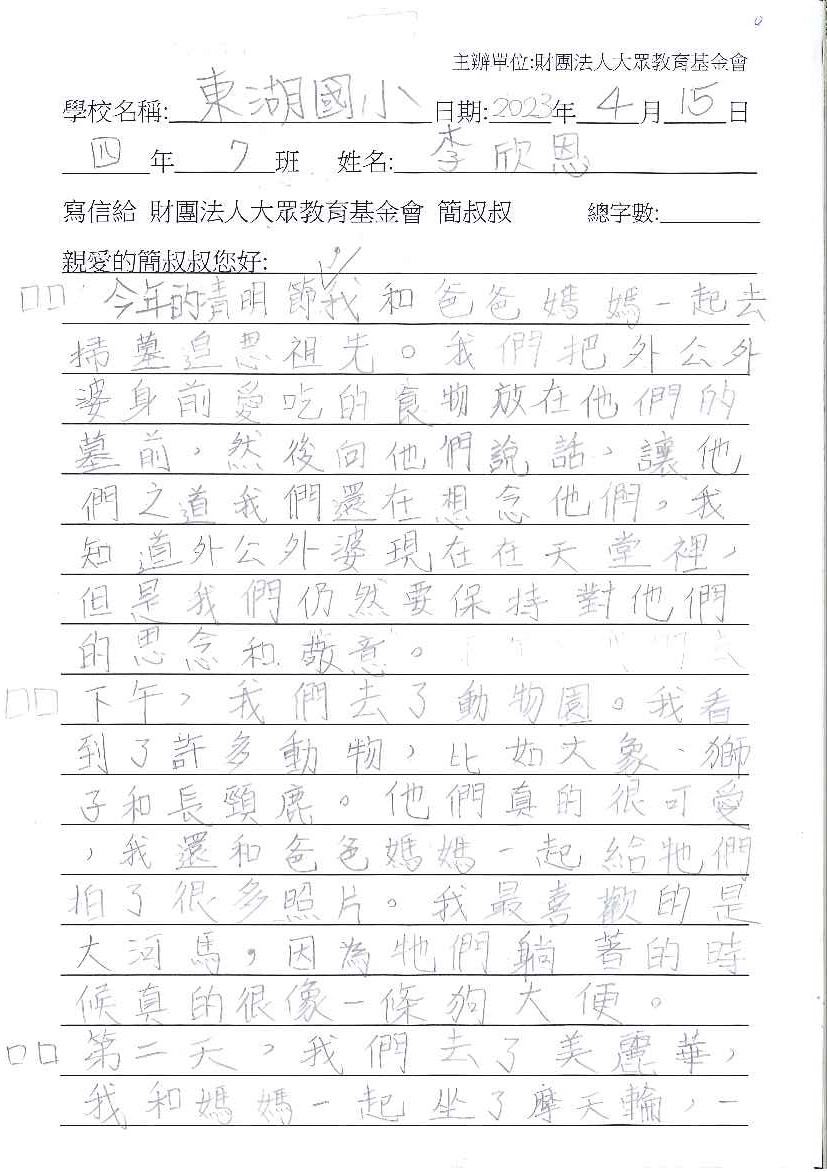 主辦單位:財團法人大眾教育基金會
學校名稱:東湖國小日期:2023年4月15日
四年7班 姓名:李欣恩
寫信給 財團法人大眾教育基金會 簡叔叔 總字數:
親愛的簡叔叔您好:
□□今年的清明節,我和爸爸媽媽一起去
掃墓追思祖先。我們把外公外
婆身前愛吃的食物放在他們的
墓前,然後向他們說話,讓他
們之道我們還在想念他們,我
知道外公外婆現在在天堂裡,
但是我們仍然要保持對他們
的思念和敬意。
□□下午,我們去了動物園。我看
到了許多動物,比如大象、獅
子和長頸鹿。他們真的很可愛
,我還和爸爸媽媽一起給牠們
拍了很多照片。我最喜歡的是
大河馬,因為牠們躺著的時
候真的很像一條狗大便。
□□第二天,我們去了美麗華,
我和媽媽一起坐了摩天輪,一